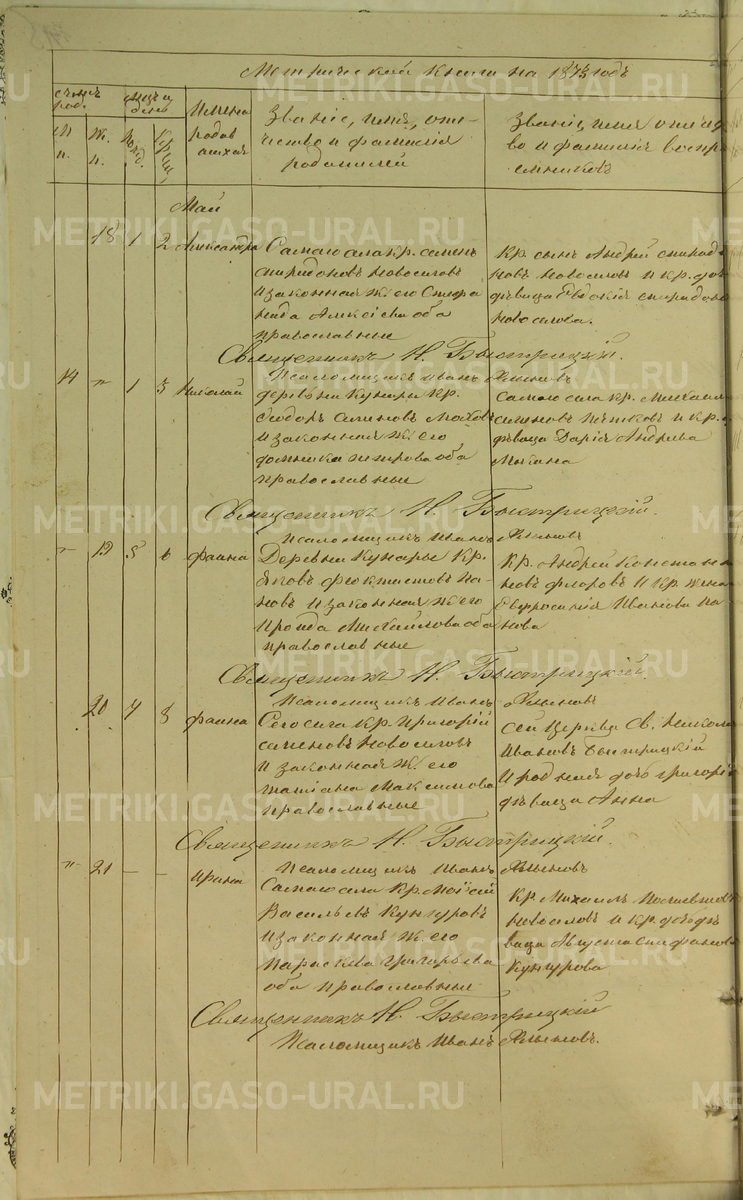 Метрической книги на 1873 годъ
счетъ род. мѣсяцъ и день Имена родив шихся Званіе, имя, отчество и фамилія родителей Званіе имя отчество и фамилія воспріемниковъ
м п. ж. п. рожд. крещ.
Май
18 1 2 Александра
Самаго села кр. Семенъ
Спиридоновъ Новоселовъ
и законная ж. его Стефа
нида Алексіева оба
православные
кр. сынъ Андрей Спиридо
новъ Новоселовъ и кр. до
дѣвица Евдокія Спиридоно
Новоселова.
Священникъ Н. Быстрицкій.
Псаломщикъ Иванъ
14 " 1 3 Николай
деревни Кунары кр.
Ѳеодоръ Семеновъ
и законная ж. его
Домника Петрова оба
православные
Самаго села кр. Михаилъ
Семеновъ и кр.
дѣвица Дарія Андреева
Священникъ Н. Быстрицкій.
Псаломщикъ Иванъ
" 19 5 6 Фаина
Деревни Кунары Кр.
Яковъ Феоктистовъ Па-
новъ и законная ж. его
Михайлова оба
православные
Кр. Андрей Константи
новъ Флоровъ и кр. жена
Евфросинія Иванова Па
нова
Священникъ Н. Быстрицкій.
Псаломщикъ Иванъ
20 7 8 Фаина
Сего села кр. Григорій
Семеновъ Новоселовъ
и законная ж. его
Татіана Максимова
православные
Сей Церкви Св. Николай
Ивановъ Быстрицкій
и родная дочь Григорія
дѣвица Анна
Священникъ Н. Быстрицкій.
Псаломщикъ Иванъ
" 21 – – Ирина
Самаго села Кр. Моѵсей
Васильевъ Кунгуровъ
и законная ж. его
Параскева Григорьева
оба православные
Кр. Михаилъ
Новоселовъ и кр. дочь дѣ
вица Августа Стефанова
Кунгурова
Священникъ Н. Быстрицкій
Псаломщикъ Иванъ
METRIKI.GASO-URAL.RU